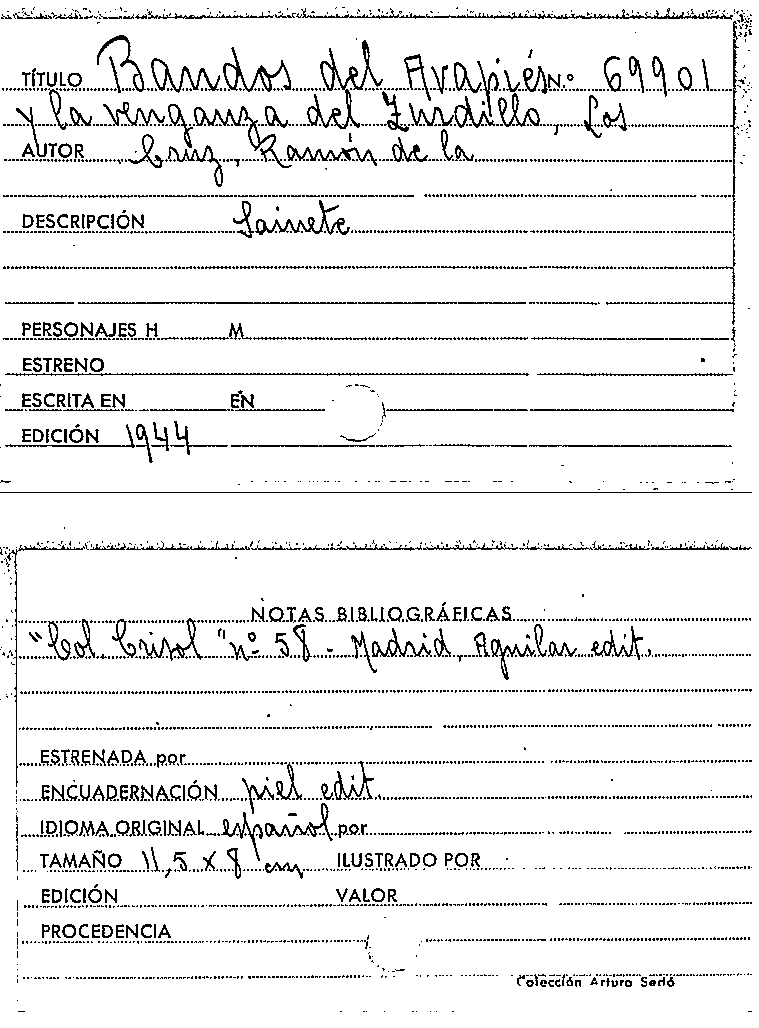 TÍTULO Bandos del Avapiés N.º 69901
y la venganza del Zurdillo, Los
AUTOR Cruz, Ramón de la
DESCRIPCIÓN Sainete
PERSONAJES H M
ESTRENO
ESCRITA EN EN
EDICIÓN 1944
NOTAS BIBLIOGRÁFICAS
"Col Crisol" nº 58 - Madrid, Aguilar edit.
ESTRENADA por
ENCUADERNACIÓN piel edit.
IDIOMA ORIGINAL español por
TAMAÑO 11,5 x 8 cm ILUSTRADO POR
EDICIÓN VALOR
PROCEDENCIA
Colección Arturo Sedó